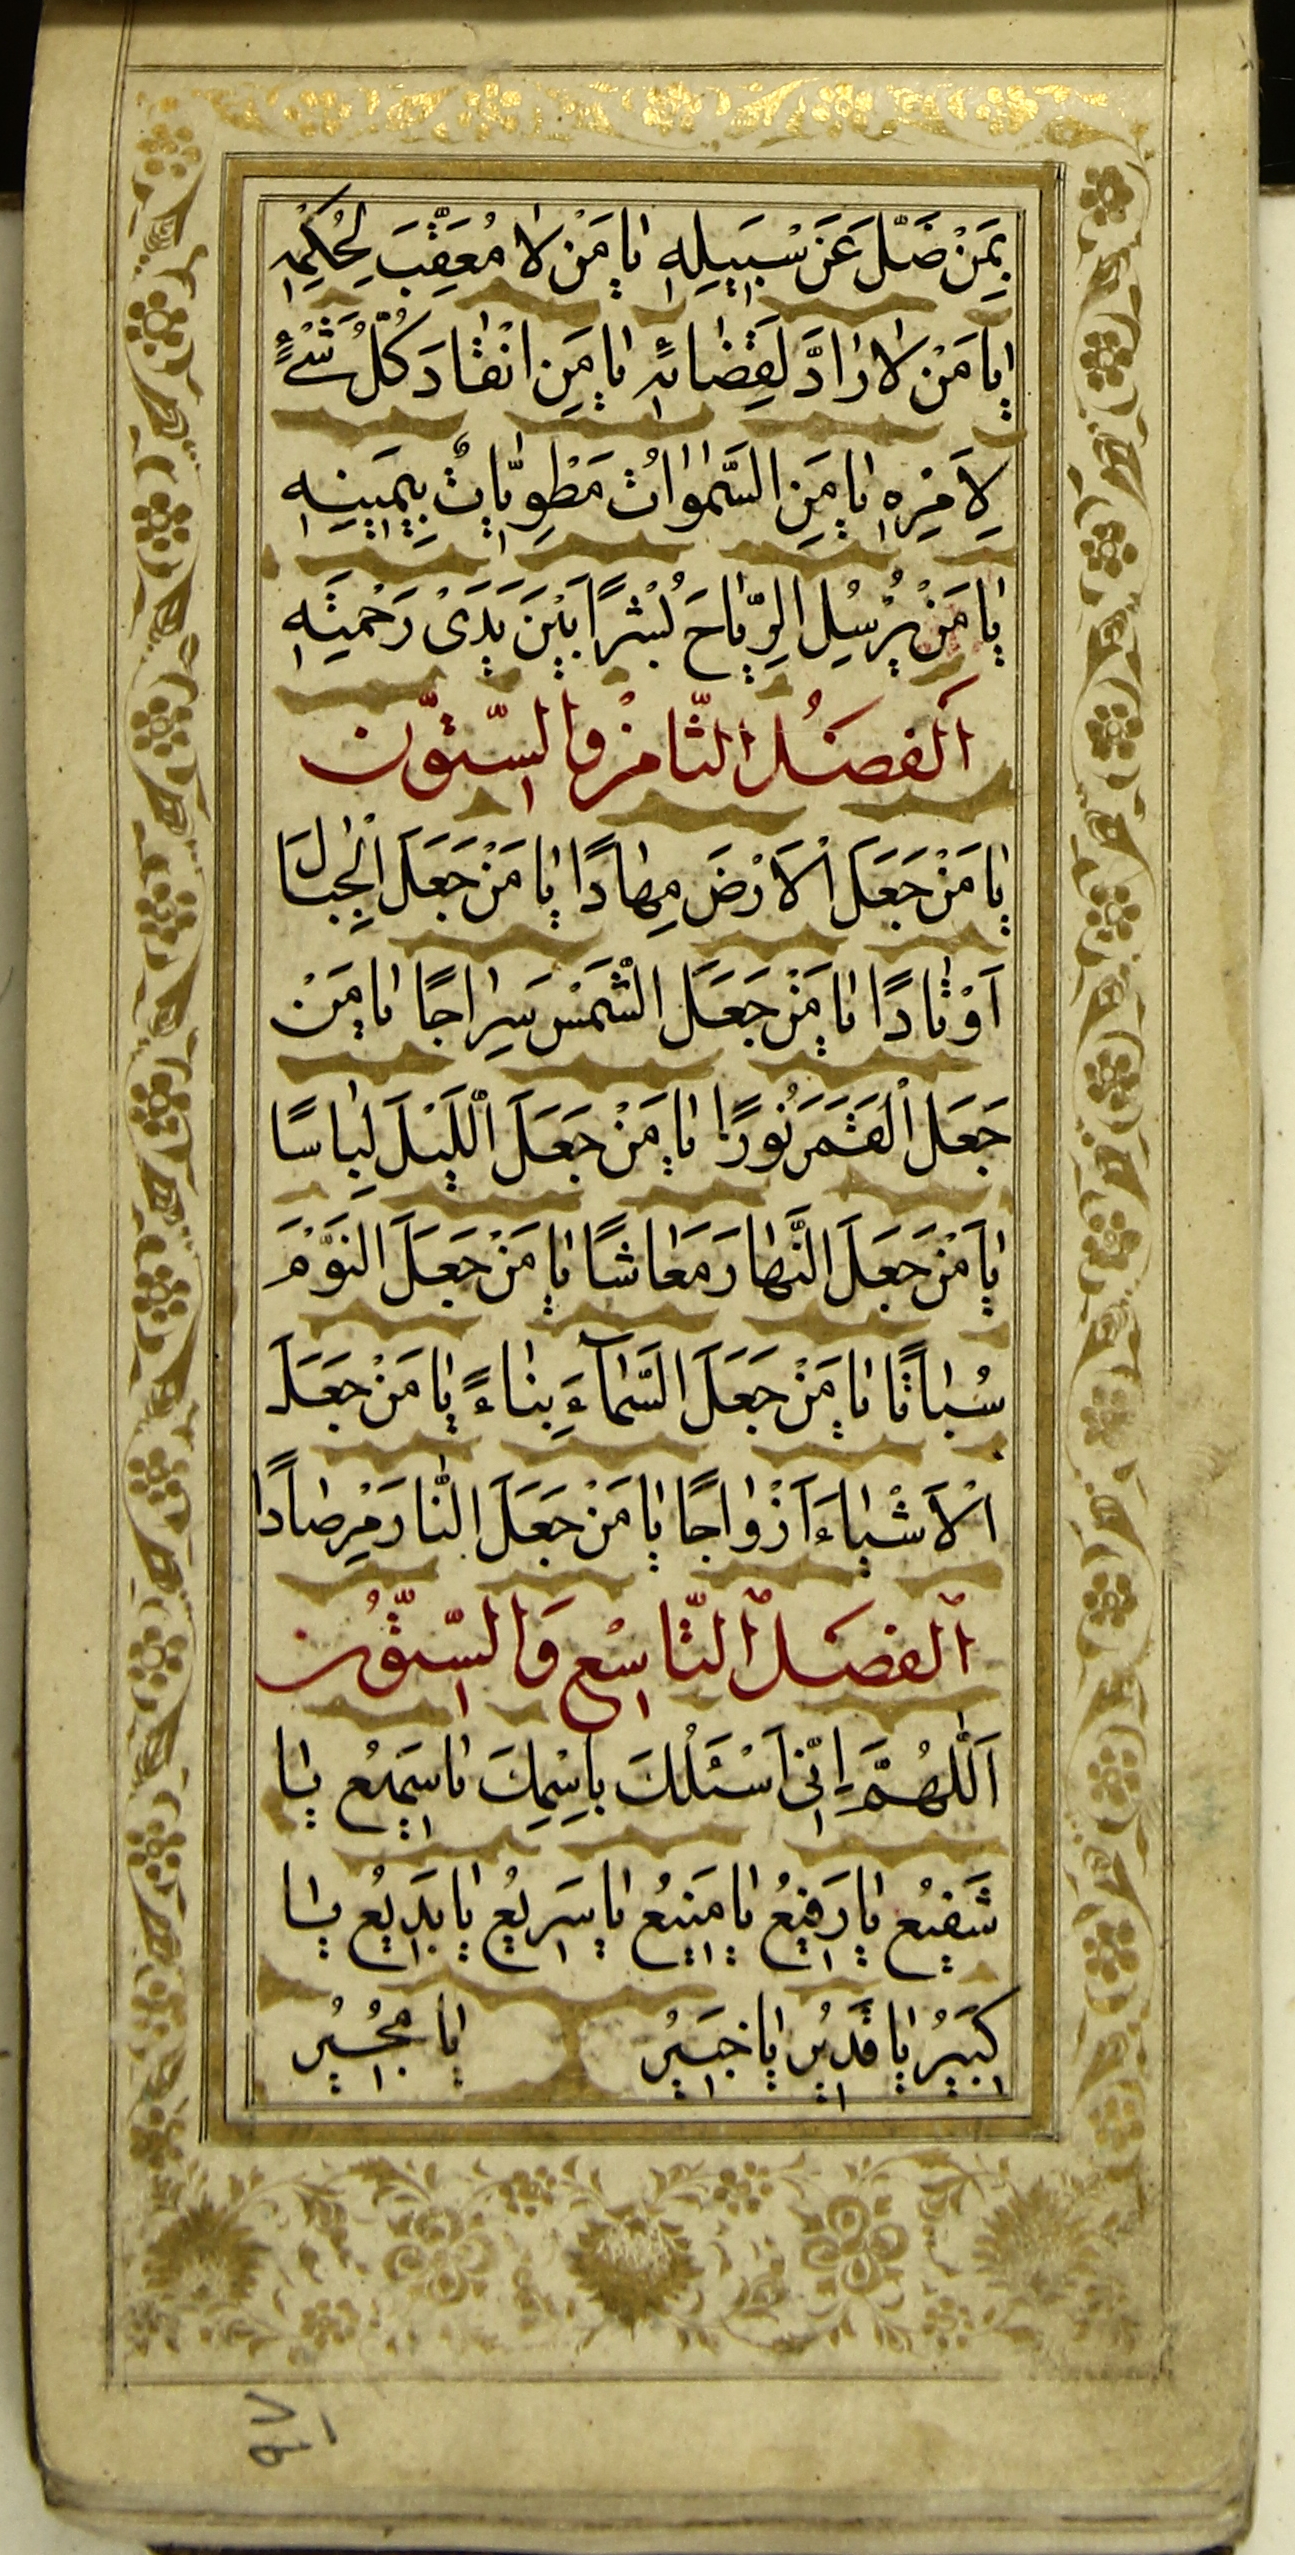 بِمَنْ ضَلَّ عَنْ سَبِيلِهِ يا مَنْ لا مُعَقِّبَ لِحُكْمِهِ
يا مَنْ لا رادَّ لِقَضائِهِ يا مَنِ انْقادَ كُلُّ شَيْءٍ
لِاَمْرِهِ يا مَنِ السَّمواتُ مَطْوِيّاتٌ بِيَمِينِهِ
يا مَنْ يُرْسِلُ الرِّياحَ بُشْرًا بَيْنَ يَدَيْ رَحْمَتِهِ
اَلْفَصْلُ الثّامِنُ وَالسِّتُّونَ
يا مَنْ جَعَلَ الْاَرْضَ مِهادًا يا مَنْ جَعَلَ الْجِبالَ
اَوْتادًا يا مَنْ جَعَلَ الشَّمْسَ سِراجًا يا مَنْ
جَعَلَ الْقَمَرَ نُورًا يا مَنْ جَعَلَ اللَّيْلَ لِباسًا
يا مَنْ جَعَلَ النَّهارَ مَعاشًا يا مَنْ جَعَلَ النَّوْمَ
سُباتًا يا مَنْ جَعَلَ السَّمآءَ بِناءً يا مَنْ جَعَلَ
الْاَشْياءَ اَزْواجًا يا مَنْ جَعَلَ النّارَ مِرْصادًا
اَلْفَصْلُ التّاسِعُ وَالسِّتُّونَ
اَللّهُمَّ اِنّي اَسْئَلُكَ بِاسْمِكَ يا سَمِيعُ يا
شَفِيعُ يا رَفِيعُ يا مَنِيعُ يا سَرِيعُ يا بَدِيعُ يا
كَبِيرُ يا قَدِيرُ يا خَبِيرُ يا مُجِيرُ
٦٧